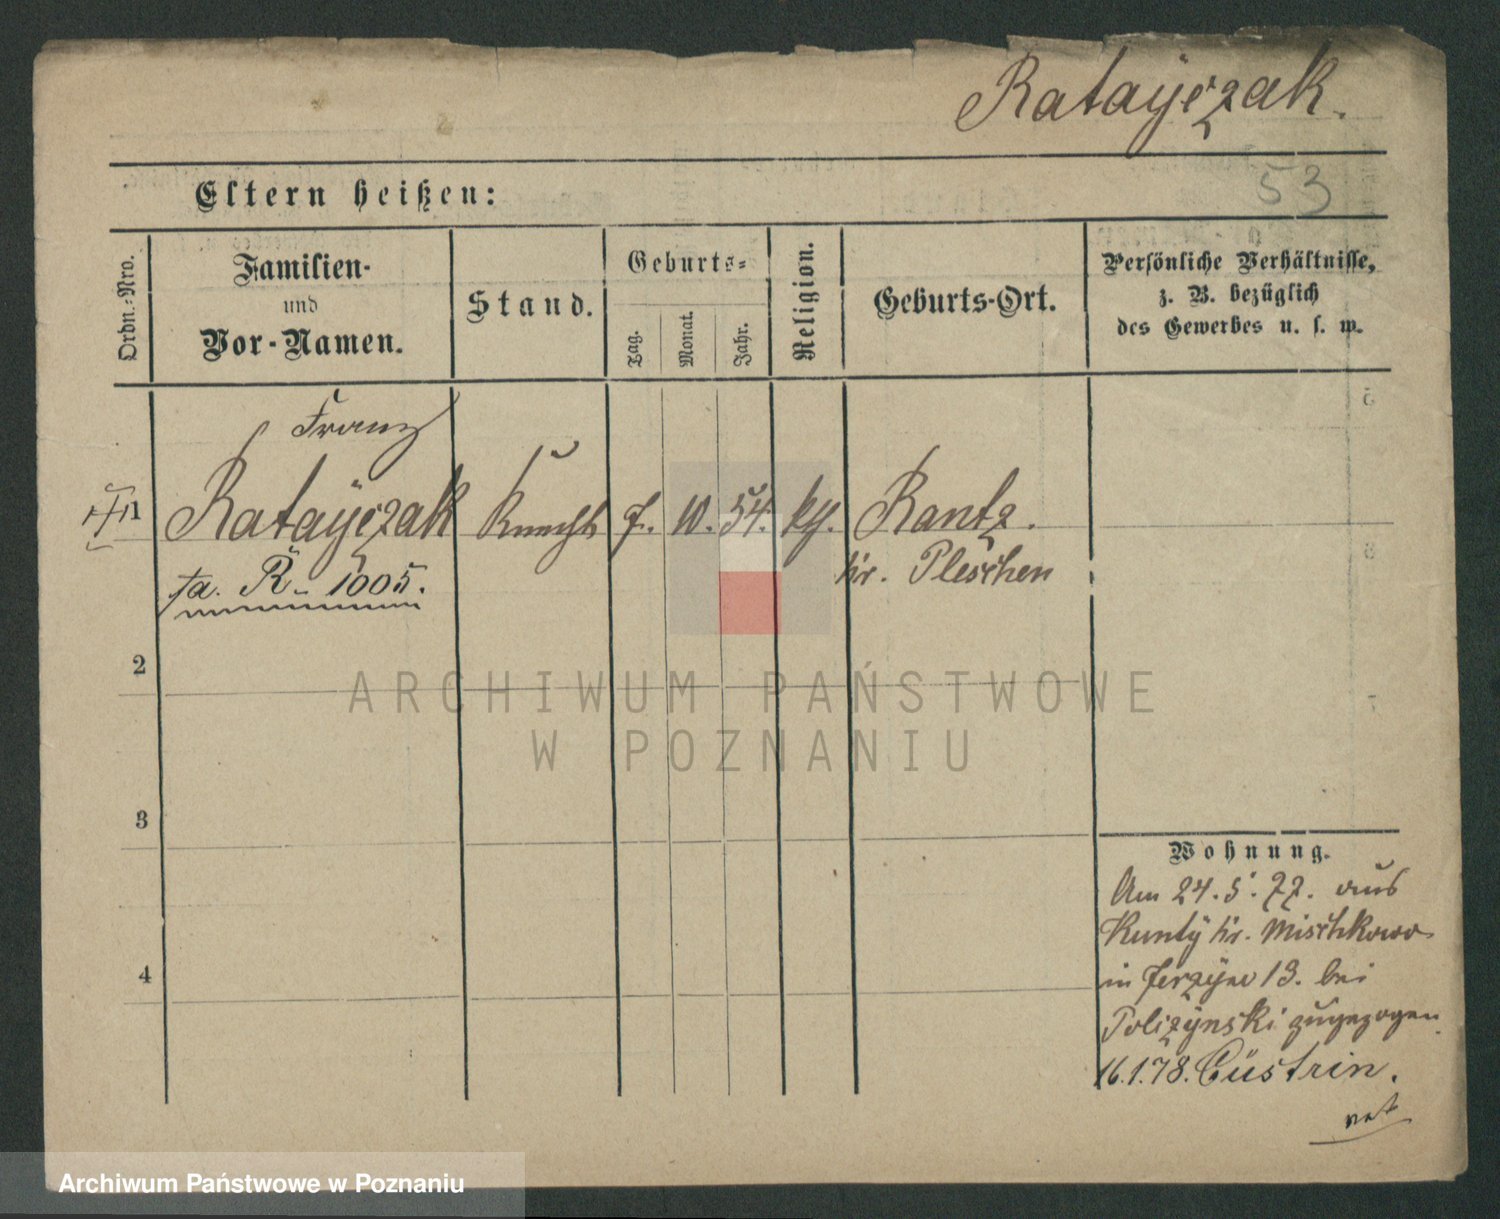 Ratajczak.
53
Eltern heißen:
Ordn.-Nro.
Familien-
und
Vor-Namen.
Stand.
Geburts-
Tag.
Monat.
Jahr.
Religion.
Geburts-Ort.
Persönliche Verhältnisse,
z. B. bezüglich
des Gewerbes u. s. w.
Franz
1 Ratajczak Knecht 7. 10. 54. kth. Rantz.
Kr. Pleschen
R. 1005.
2
3
4
Wohnung.
Am 24.5.77. aus
Kuntÿ Kr. Mischkowo
in Jerzÿce 13. bei
Poliżÿnski zugezogen
16.1.78. Cüstrin.
ARCHIWUM PAŃSTWOWE
W POZNANIU
Archiwum Państwowe w Poznaniu